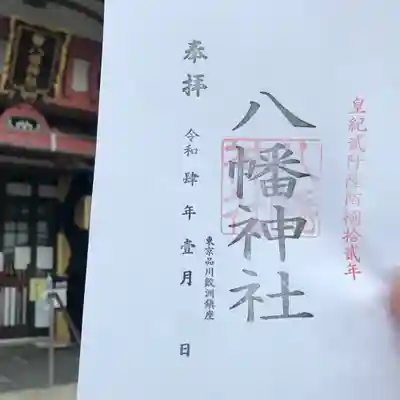 皇紀貳阡陸陌捌拾貳年
八幡神社
東京品川鮫洲鎮座
奉拝
令和肆年壹月 日